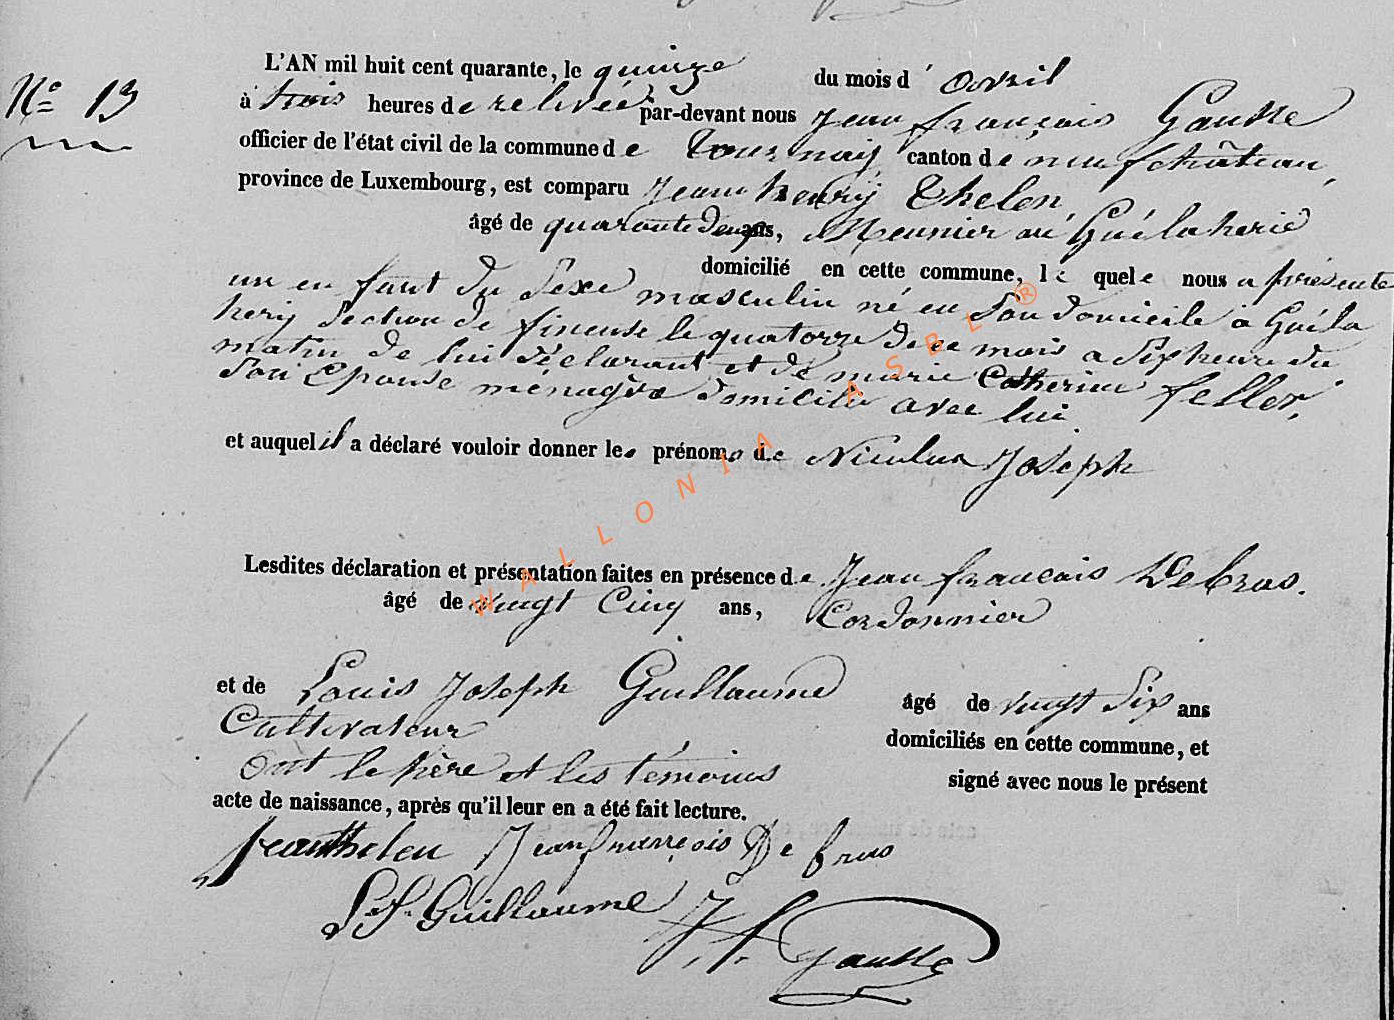 N° 13
L'AN mil huit cent quarante, le quinze du mois d' avril
à trois heures de relevée par-devant nous Jean françois Gausse
officier de l'état civil de la commune de tournay canton de neufchâteau,
province de Luxembourg, est comparu Jean henry Thelen,
âgé de quarante deux ans, Meunier au Guélaherie
domicilié en cette commune, le quele nous a présenté
un enfant du Sexe masculin né en Son domicile à Guéla
hery Section de fineuse le quatorze de ce mois a Six heure du
matin de lui déclarant et de marie Catherine feller,
Son Epouse ménagère domicilie avec lui.
et auquel il a déclaré vouloir donner les prénoms de Nicolas Joseph
Lesdites déclaration et présentation faites en présence de Jean francois Debras.
âgé de vingt Cinq ans, Cordonnier
et de Louis Joseph Guillaume âgé de vingt Six ans
Cultivateur
domiciliés en cette commune, et
Ont le père et les témoins signé avec nous le présent
acte de naissance, après qu'il leur en a été fait lecture.
Jean thelen Jean françois De bras
L. J. Guillaume J. f. Gausse
WALLONIA ASBL ®